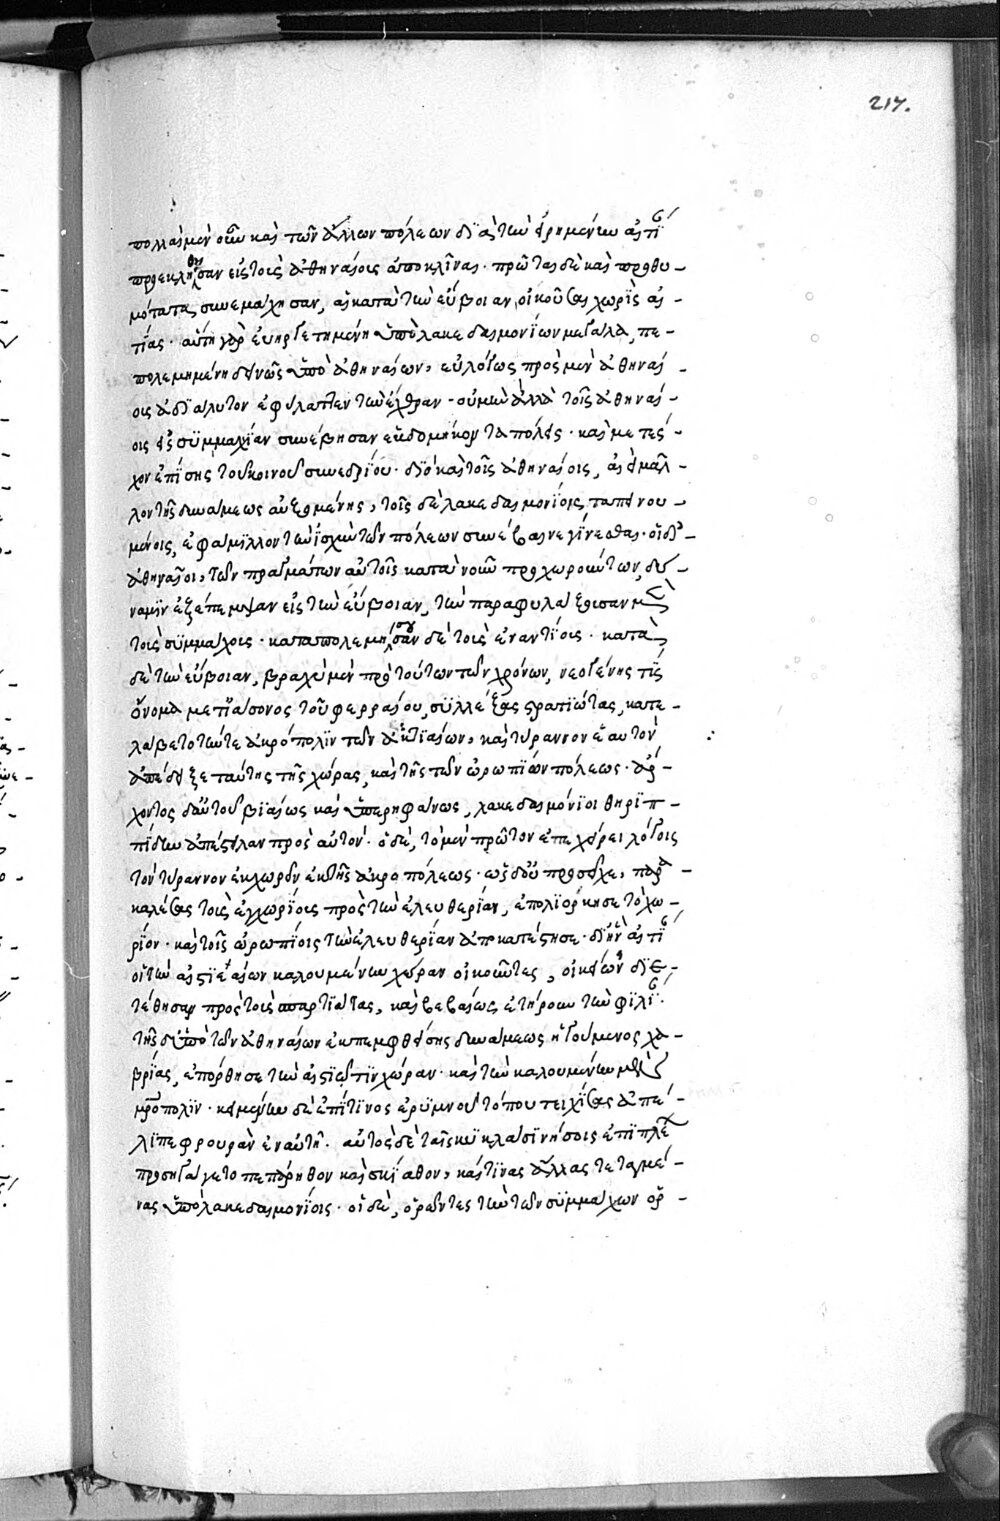 217.
πολλαὶ μὲν οὖν καὶ τῶν ἄλλων πόλεων διὰ τὰς εἰρημένας αἰτί
προεκλήθησαν εἰς τοὺς ἀθηναίους ἀποκλῖναι· πρῶται δὲ καὶ προθυ-
μότατα συνεμάχησαν, αἱ κατὰ τὴν εὔβοιαν οἰκοῦσαι χωρὶς ἑσ-
τίας· αὕτη γὰρ εὐηργετημένη ὑπὸ λακεδαιμονίων μεγάλα, πε-
πολεμημένη δεινῶς ὑπὸ ἀθηναίων, εὐλόγως πρὸς μὲν ἀθηναί-
ους ἀδιάλυτον ἐφύλαττεν τὴν ἔχθραν· οὐ μὴν ἀλλὰ τοῖς ἀθηναί-
οις εἰς συμμαχίαν συνέβησαν ἑβδομήκοντα πόλεις· καὶ μετέ-
χον ἐπίσης τοῦ κοινοῦ συνεδρίου· διὸ καὶ τοῖς ἀθηναίοις, ἀεὶ μᾶλ-
λον τῆς δυνάμεως αὐξομένης, τοῖς δὲ λακεδαιμονίοις ταπεινου-
μένοις, ἐφάμιλλον τὴν ἰσχὺν τῶν πόλεων συνέβαινε γίνεσθαι· οἱ δ'
ἀθηναῖοι, τῶν πραγμάτων αὐτοῖς κατὰ νοῦν προχωρούντων, δύ-
ναμιν ἐξέπεμψαν εἰς τὴν εὔβοιαν, τὴν παραφυλάξουσαν μὲν
τοὺς συμμάχους· καταπολεμήσουσαν δὲ τοὺς ἐναντίους· κατὰ
δὲ τὴν εὔβοιαν, βραχὺ μὲν πρὸ τούτων τῶν χρόνων, νεογένης τὶς
ὄνομα μετ' ἰάσονος τοῦ φερραίου, συλλέξας στρατιώτας, κατε-
λάβετο τήν τε ἀκρόπολιν τῶν ἑστιαίων, καὶ τύραννον ἑαυτὸν
ἀπέδειξε ταύτης τῆς χώρας, καὶ τῆς τῶν ὠρωπίων πόλεως· ἄρ-
χοντος δ' αὐτοῦ βιαίως καὶ ὑπερηφάνως, λακεδαιμόνιοι θηριπ-
πίδην ἀπέστειλαν πρὸς αὐτόν· ὁ δὲ, τὸ μὲν πρῶτον ἐπεχείρει λόγοις
τὸν τύραννον ἐκχωρεῖν ἐκ τῆς ἀκροπόλεως· ὡς δ' οὐ προσεῖχε, παρα-
καλέσας τοὺς ἐγχωρίους πρὸς τὴν ἐλευθερίαν, ἐπολιόρκησε τὸ χω-
ρίον· καὶ τοῖς ὠρωπίοις τὴν ἐλευθερίαν ἀποκατέστησε· δι' ἣν αἰτί
οἱ τὴν ἑστιαίων καλουμένην χώραν οἰκοῦντες, οἰκείως διε-
τέθησαν πρὸς τοὺς σπαρτιάτας, καὶ βεβαίως ἐτήρουν τὴν φιλί·
τῆς δ' ὑπὸ τῶν ἀθηναίων ἐκπεμφθείσης δυνάμεως ἡγούμενος χα-
βρίας, ἐπόρθησε τὴν ἑστιῶτιν χώραν· καὶ τὴν καλουμένην
μητρόπολιν· κειμένην δὲ ἐπί τινος ἐρυμνοῦ τόπου τειχίσας ἀπέ-
λιπε φρουρὰν ἐν αὐτῇ· αὐτὸς δὲ ταῖς κυκλάσι νήσοις ἐπιπλε
προσηγάγετο πεπάρηθον καὶ σκίαθον, καί τινας ἄλλας τεταγμέ-
νας ὑπὸ λακεδαιμονίοις· οἱ δὲ, ὁρῶντες τὴν τῶν συμμάχων ὁρ-